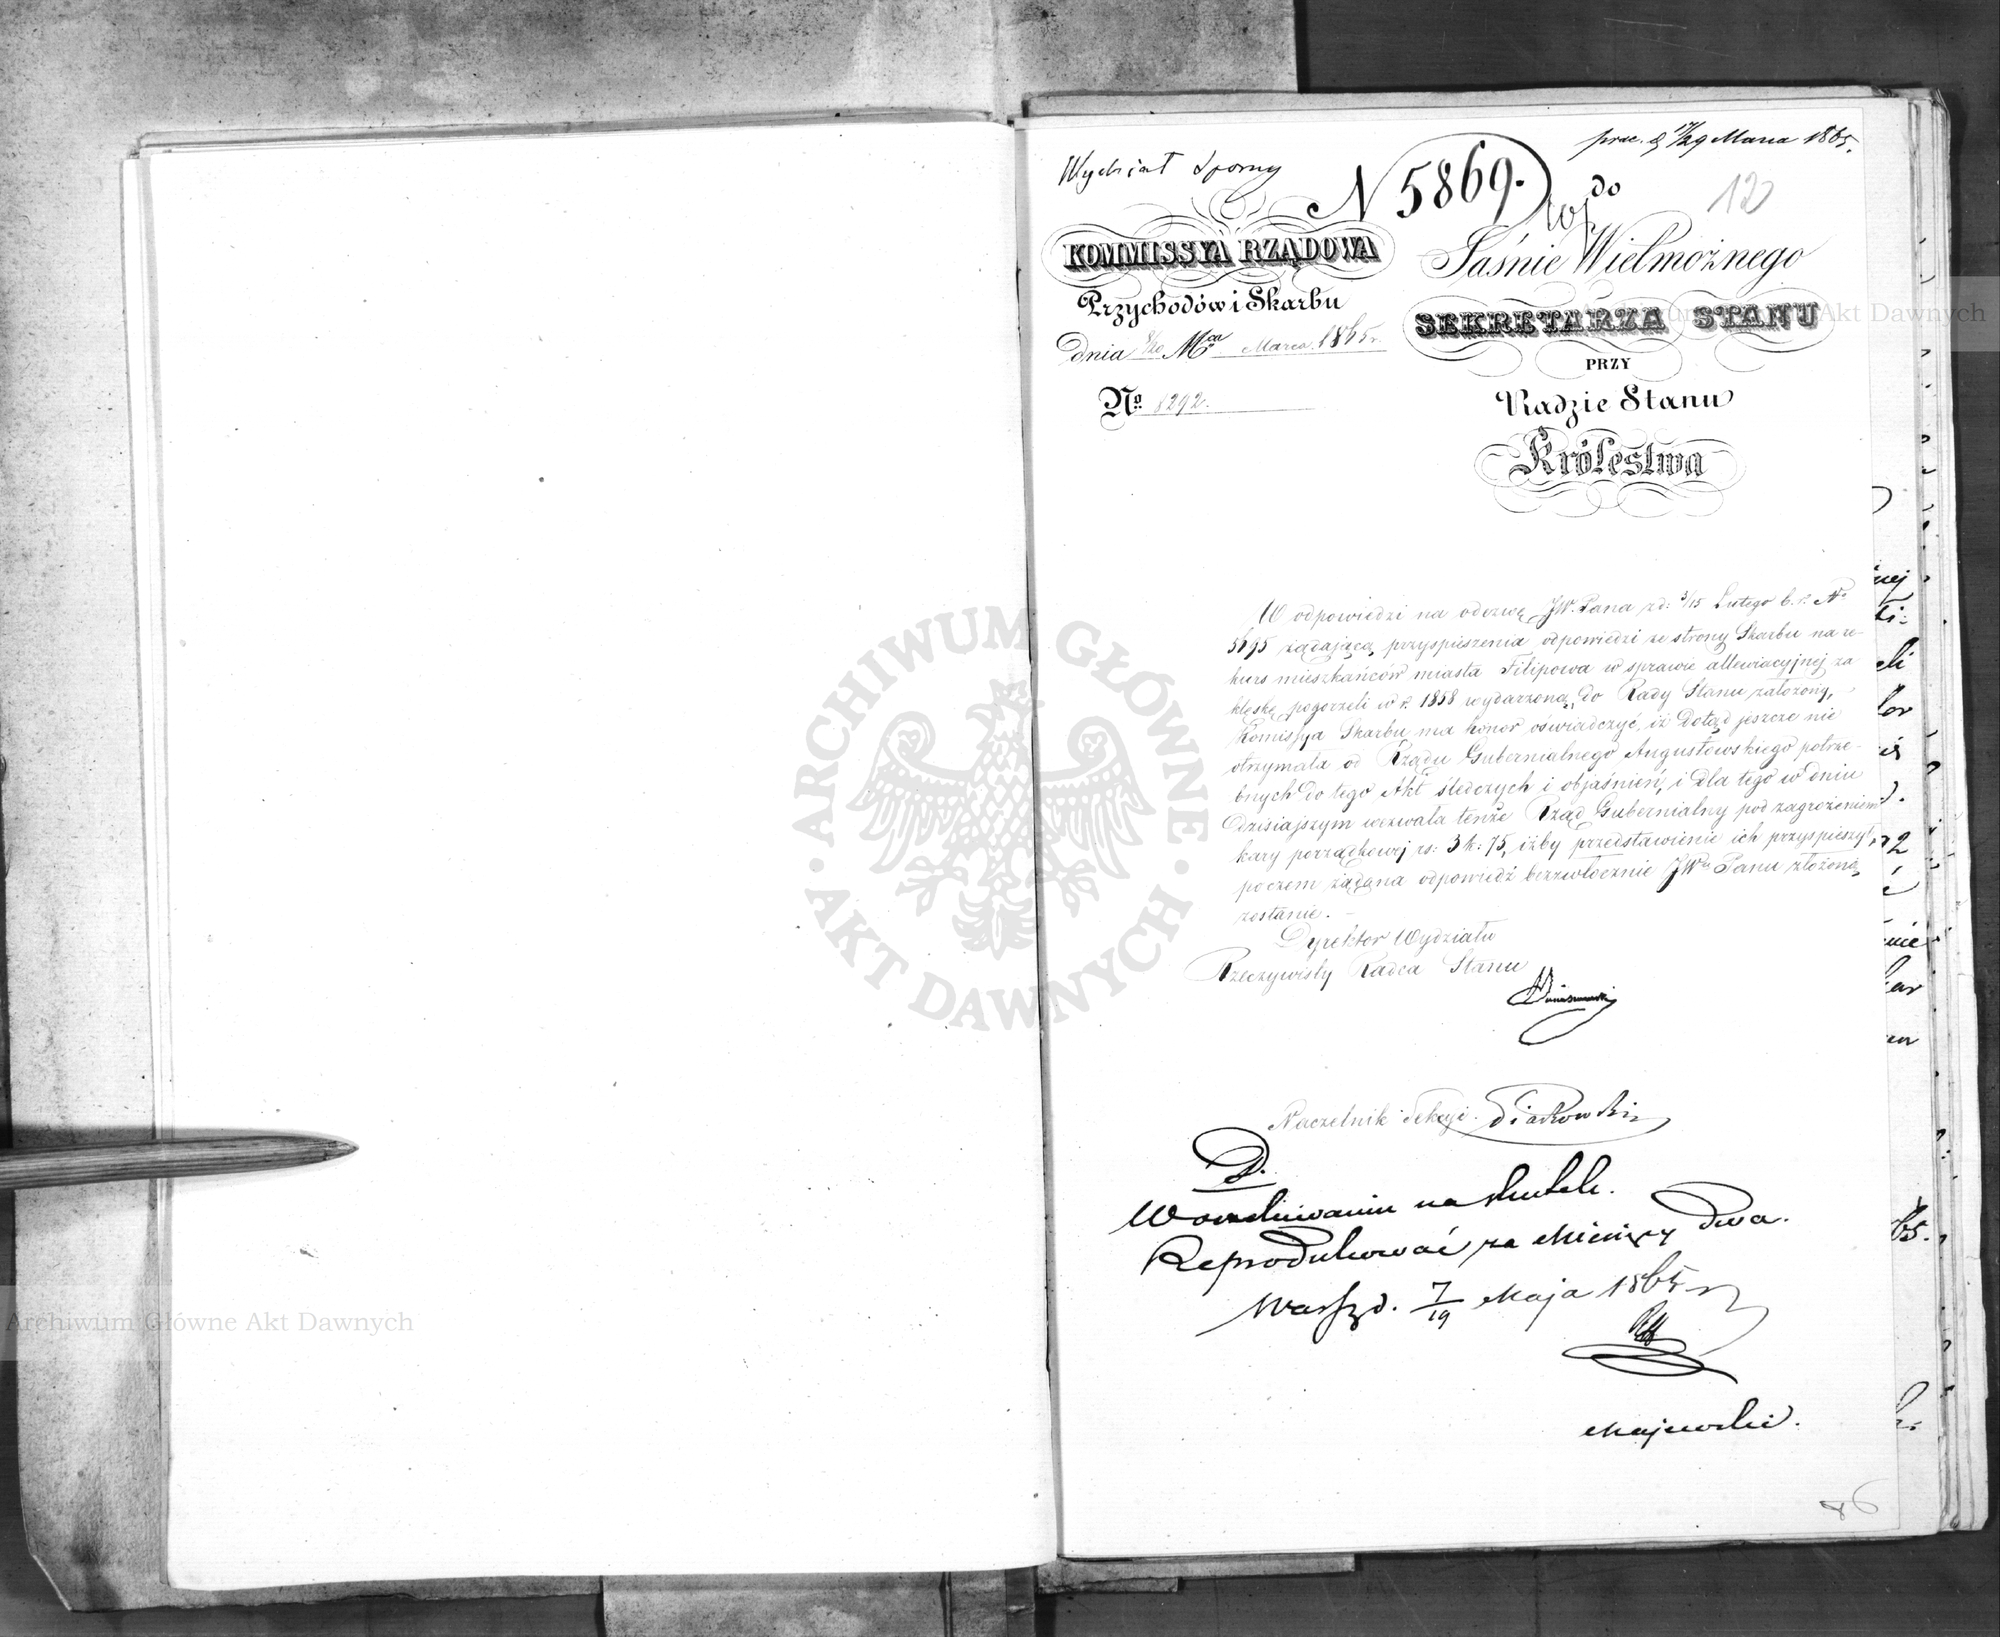 prae. d 17/29 Marca 1865.
Wydział Sporny
N 5869.
do
120
KOMMISSYA RZĄDOWA
Przychodów i Skarbu
Dnia 8/20 Mca Marca 1865 r.
No 8292.
Jaśnie Wielmożnego
SEKRETARZA STANU
PRZY
Radzie Stanu
Królestwa
W odpowiedzi na odezwę JW. Pana z d: 3/15 Lutego b. r. No
5695 żądającą przyspieszenia odpowiedzi ze strony Skarbu na re-
kurs mieszkańców miasta Filipowa w sprawie allewiacyjnej za
klęskę pogorzeli w r. 1858 wydarzoną, do Rady Stanu założony,
Komissya Skarbu ma honor oświadczyć, iż dotąd jeszcze nie
otrzymała od Rządu Gubernialnego Augustowskiego potrze-
bnych do tego Akt śledczych i objaśnień, i dla tego w dniu
dzisiajszym wezwała tenże Rząd Gubernialny pod zagrożeniem
kary porządkowej rs: 3 k: 75, iżby przedstawienie ich przyspieszył,
poczem żądana odpowiedź bezzwłocznie JWu Panu złożoną
zostanie.
Dyrektor Wydziału
Rzeczywisty Radca Stanu
Naczelnik Sekcyi
D.
W oczekiwaniu na skutek.
Reprodukować za Miesięcy Dwa.
Warsz d. 7/19 Maja 1865 r
Majewski.
86
ARCHIWUM GŁÓWNE AKT DAWNYCH
Archiwum Główne Akt Dawnych
Archiwum Główne Akt Dawnych